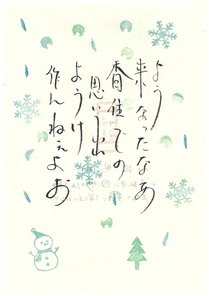 よう
来なったなあ
香住での
思い出
ようけ
作んねぇよお